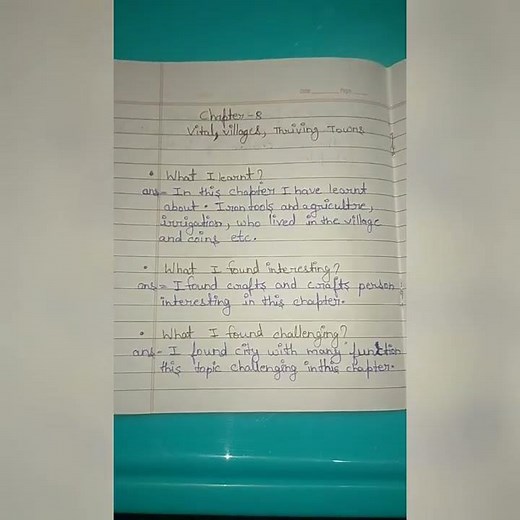 Date Page
Chapter-8
Vital, villages, Thriving Towns
• What I learnt?
ans- In this chapter I have learnt
about • Iron tools and agricultre,
irrigation, who lived in the village
and coins etc.
• What I found interesting?
ans= I found crafts and crafts person
interesting in this chapter.
• What I found challenging?
ans- I found city with many function
this topic challenging in this chapter.